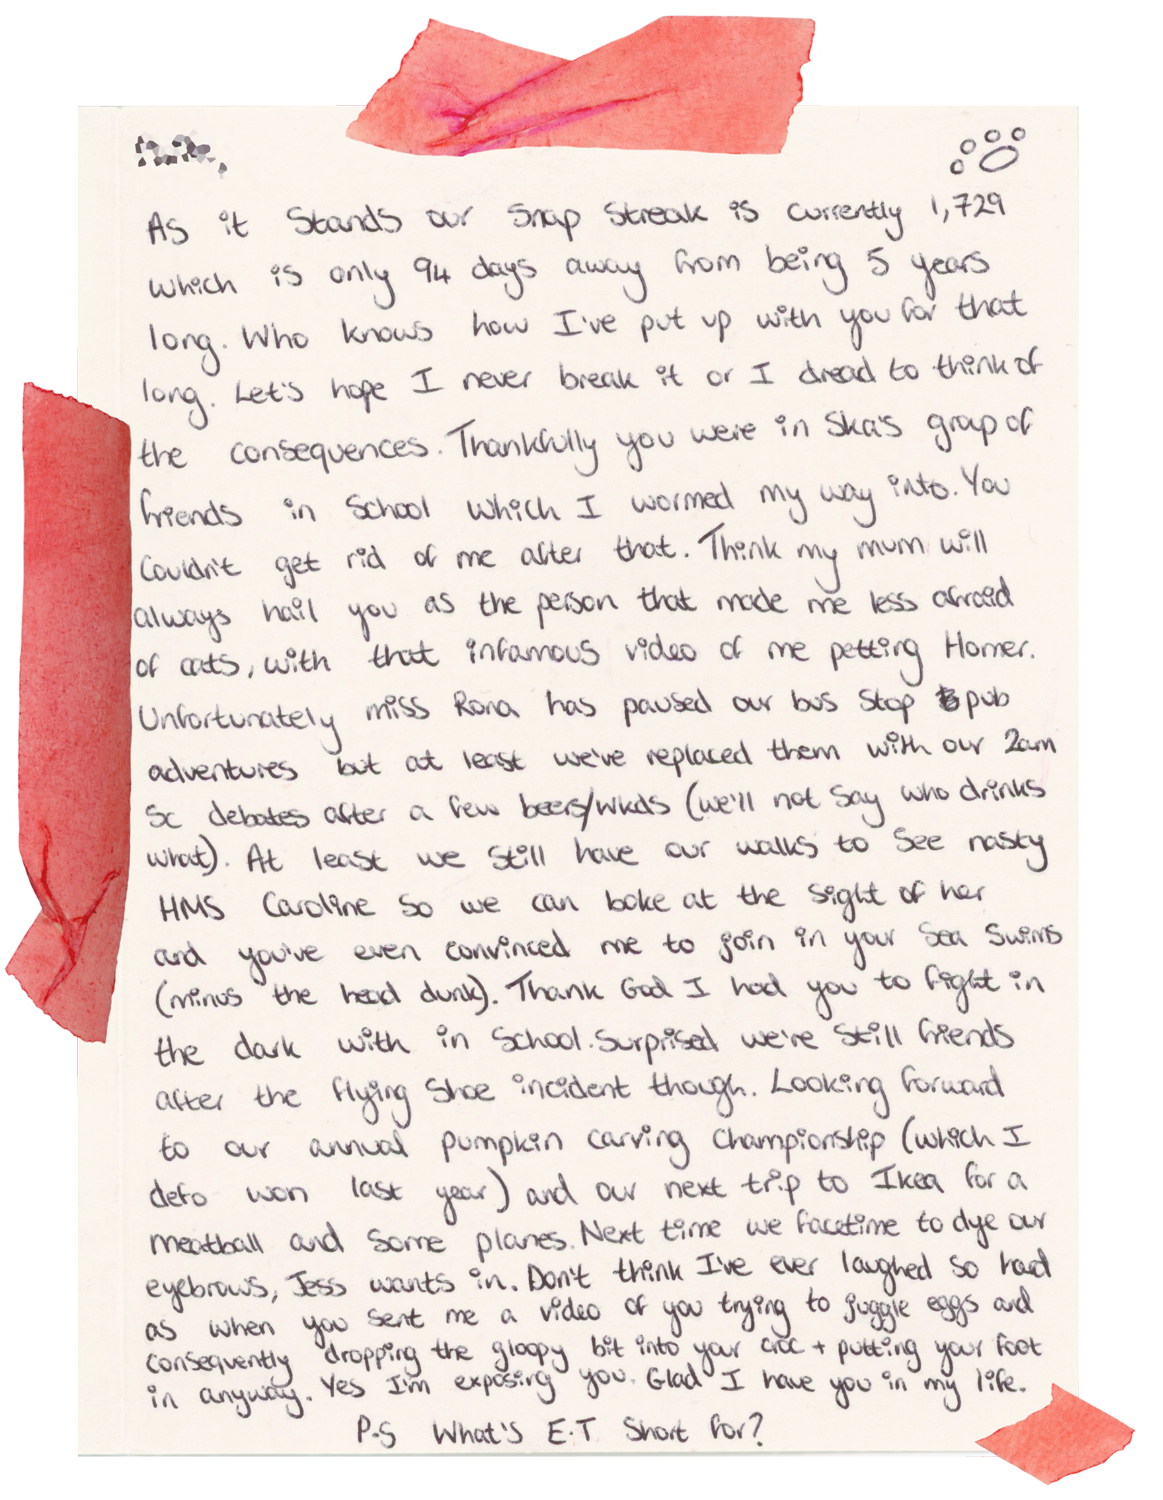 As it stands our snap streak is currently 1,729
which is only 94 days away from being 5 years
long. Who knows how I've put up with you for that
long. Let's hope I never break it or I dread to think of
the consequences. Thankfully you were in Ska's group of
friends in school which I wormed my way into. You
couldn't get rid of me after that. Think my mum will
always hail you as the person that made me less afraid
of cats, with that infamous video of me petting Homer.
Unfortunately miss Rona has paused our bus stop pub
adventures but at least we've replaced them with our 2am
sc debates after a few beers/wkds (we'll not say who drinks
what). At least we still have our walks to see nasty
HMS Caroline so we can boke at the sight of her
and you've even convinced me to join in your sea swims
(minus the head dunk). Thank God I had you to fight in
the dark with in school. Surprised we're still friends
after the flying shoe incident though. Looking forward
to our annual pumpkin carving championship (which I
defo won last year) and our next trip to Ikea for a
meatball and some planes. Next time we facetime to dye our
eyebrows, Jess wants in. Don't think I've ever laughed so hard
as when you sent me a video of you trying to juggle eggs and
consequently dropping the gloopy bit into your croc + putting your foot
in anyway. Yes I'm exposing you. Glad I have you in my life.
P.S What's E.T short for?